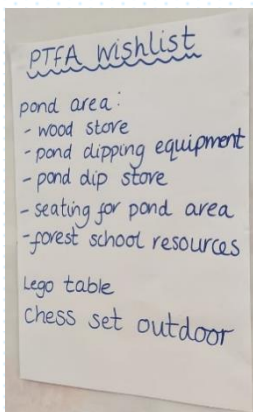 PTFA Wishlist
pond area:
- wood store
- pond dipping equipment
- pond dip store
- seating for pond area
- forest school resources
Lego table
chess set outdoor